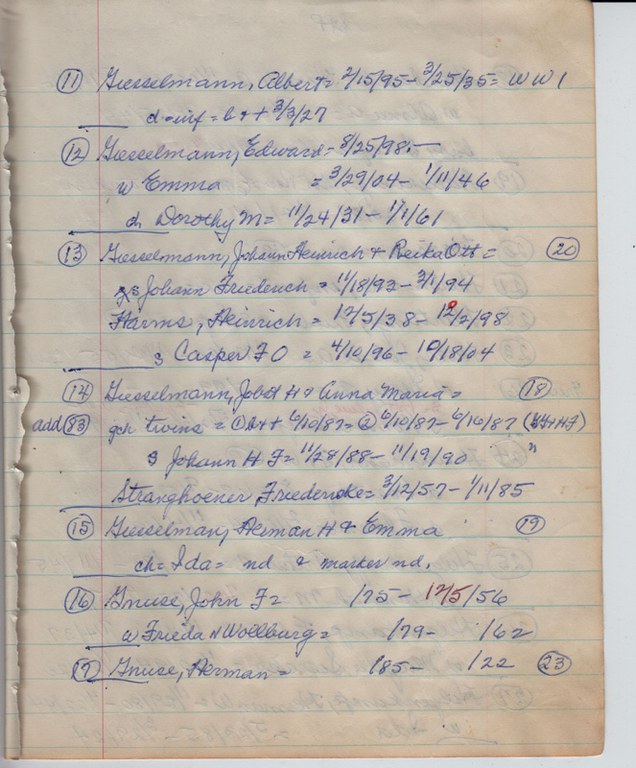 (11) Giesselmann, Albert = 2/15/95 - 3/25/35 = WW 1
d - inf = b + + 3/3/27
(12) Giesselmann, Edward = 8/25/98. -
w Emma = 3/29/04 - 1/11/46
d Dorothy M = 11/24/31 - 1/1/61
(13) Giesselmann, Johann Heinrich + Reika Ott = (20)
s Johann Friederich = 11/18/93 - 3/1/94
Harms, Heinrich = 12/5/38 - 12/2/98
s Casper F O = 4/10/96 - 10/18/04
(14) Giesselmann, Jobst H & Anna Maria = (18)
add (83) gch twins = (1) b + + 6/10/87 = (2) 6/10/87 - 6/16/87
s Johann H F = 11/28/88 - 11/19/90 "
Stranghoener, Friedericke = 3/12/57 - 1/11/85
(15) Giesselman, Herman H & Emma (19)
ch = Ida = nd & marker nd.
(16) Gnuse, John F = /75 - 12/5/56
w Frieda N Wollburg = /79 - /62
(17) Gnuse, Herman = /85 - /22 (23)